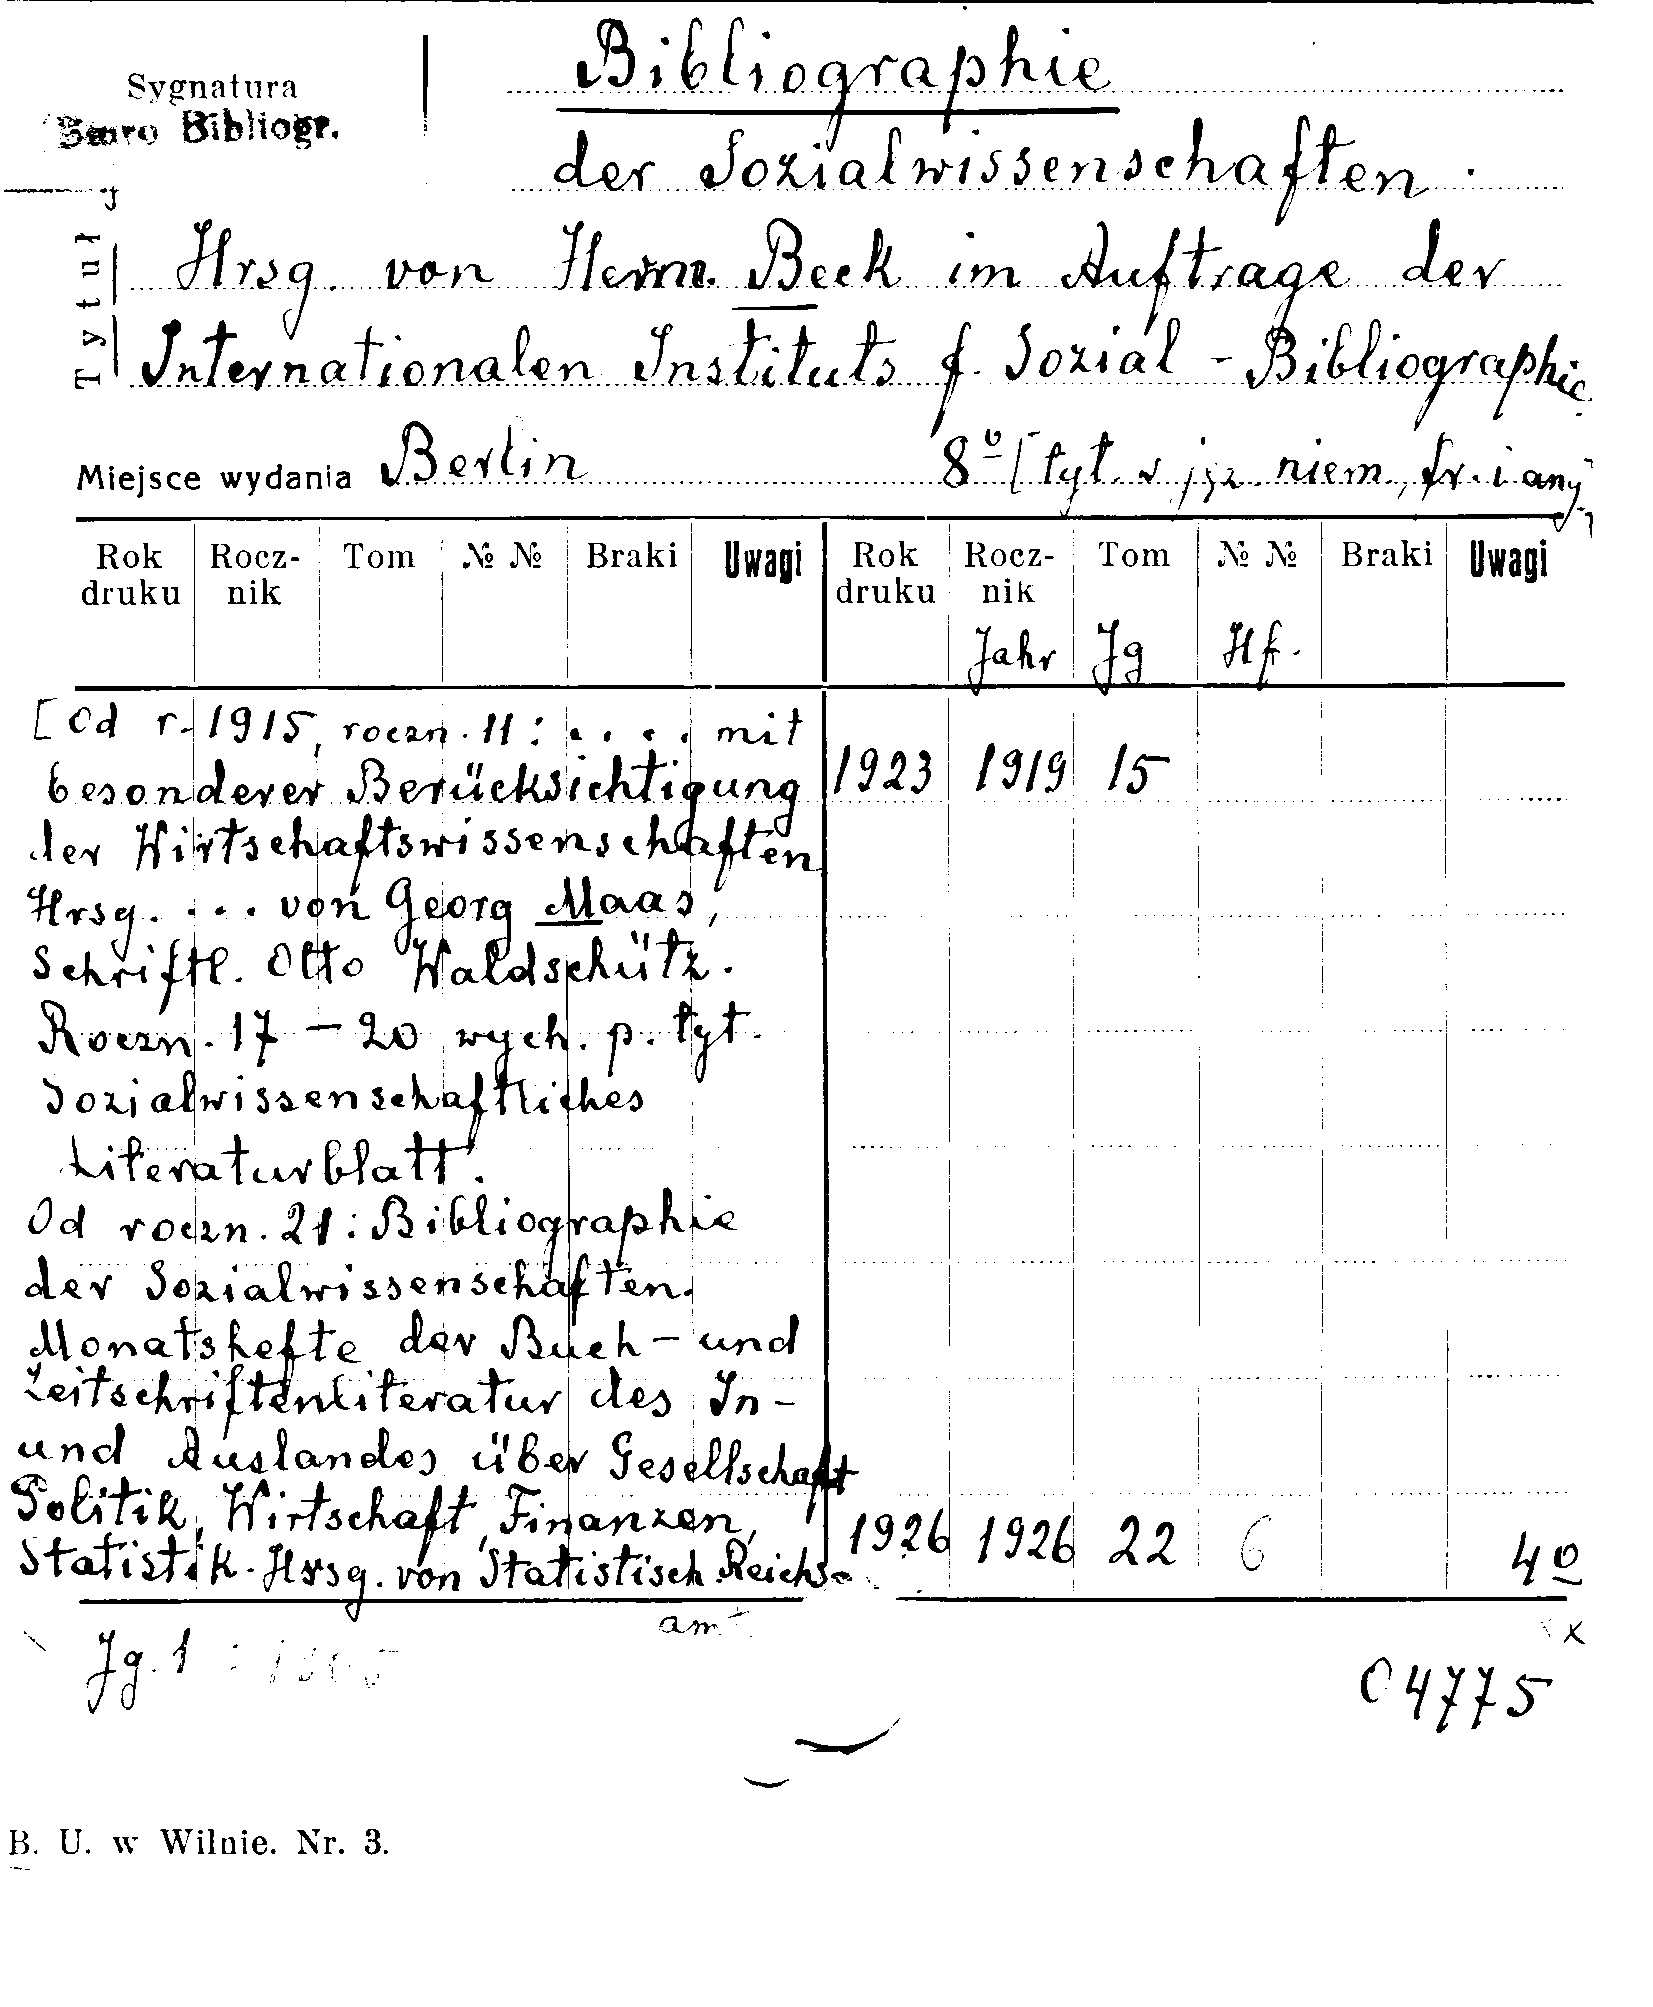 Bibliographie
Sygnatura
Biuro Bibliogr.
der Sozialwissenschaften.
Tytuł
Hrsg. von Herm. Beck im Auftrage der
Internationalen Instituts f. Sozial-Bibliographie
Miejsce wydania Berlin 8º [tyt. w jęz. niem., fr. i ang.]
Rok druku Rocz-nik Tom № № Braki Uwagi Rok druku Rocz-nik Tom № № Braki Uwagi
Jahr Jg Hf.
[Od r. 1915, roczn. 11: .... mit
besonderer Berücksichtigung
1923 1919 15
der Wirtschaftswissenschaften
Hrsg. ... von Georg Maas,
Schriftl. Otto Waldschütz.
Roczn. 17 – 20 wych. p. tyt.
Sozialwissenschaftliches
Literaturblatt.
Od roczn. 21: Bibliographie
der Sozialwissenschaften.
Monatshefte der Buch- und
Zeitschriftenliteratur des In-
und Auslandes über Gesellschaft
Politik, Wirtschaft, Finanzen,
1926 1926 22 6 4º
Statistik. Hrsg. von Statistisch. Reichs-
amt
x
Jg. 1 : 1905
04775
B. U. w Wilnie. Nr. 3.